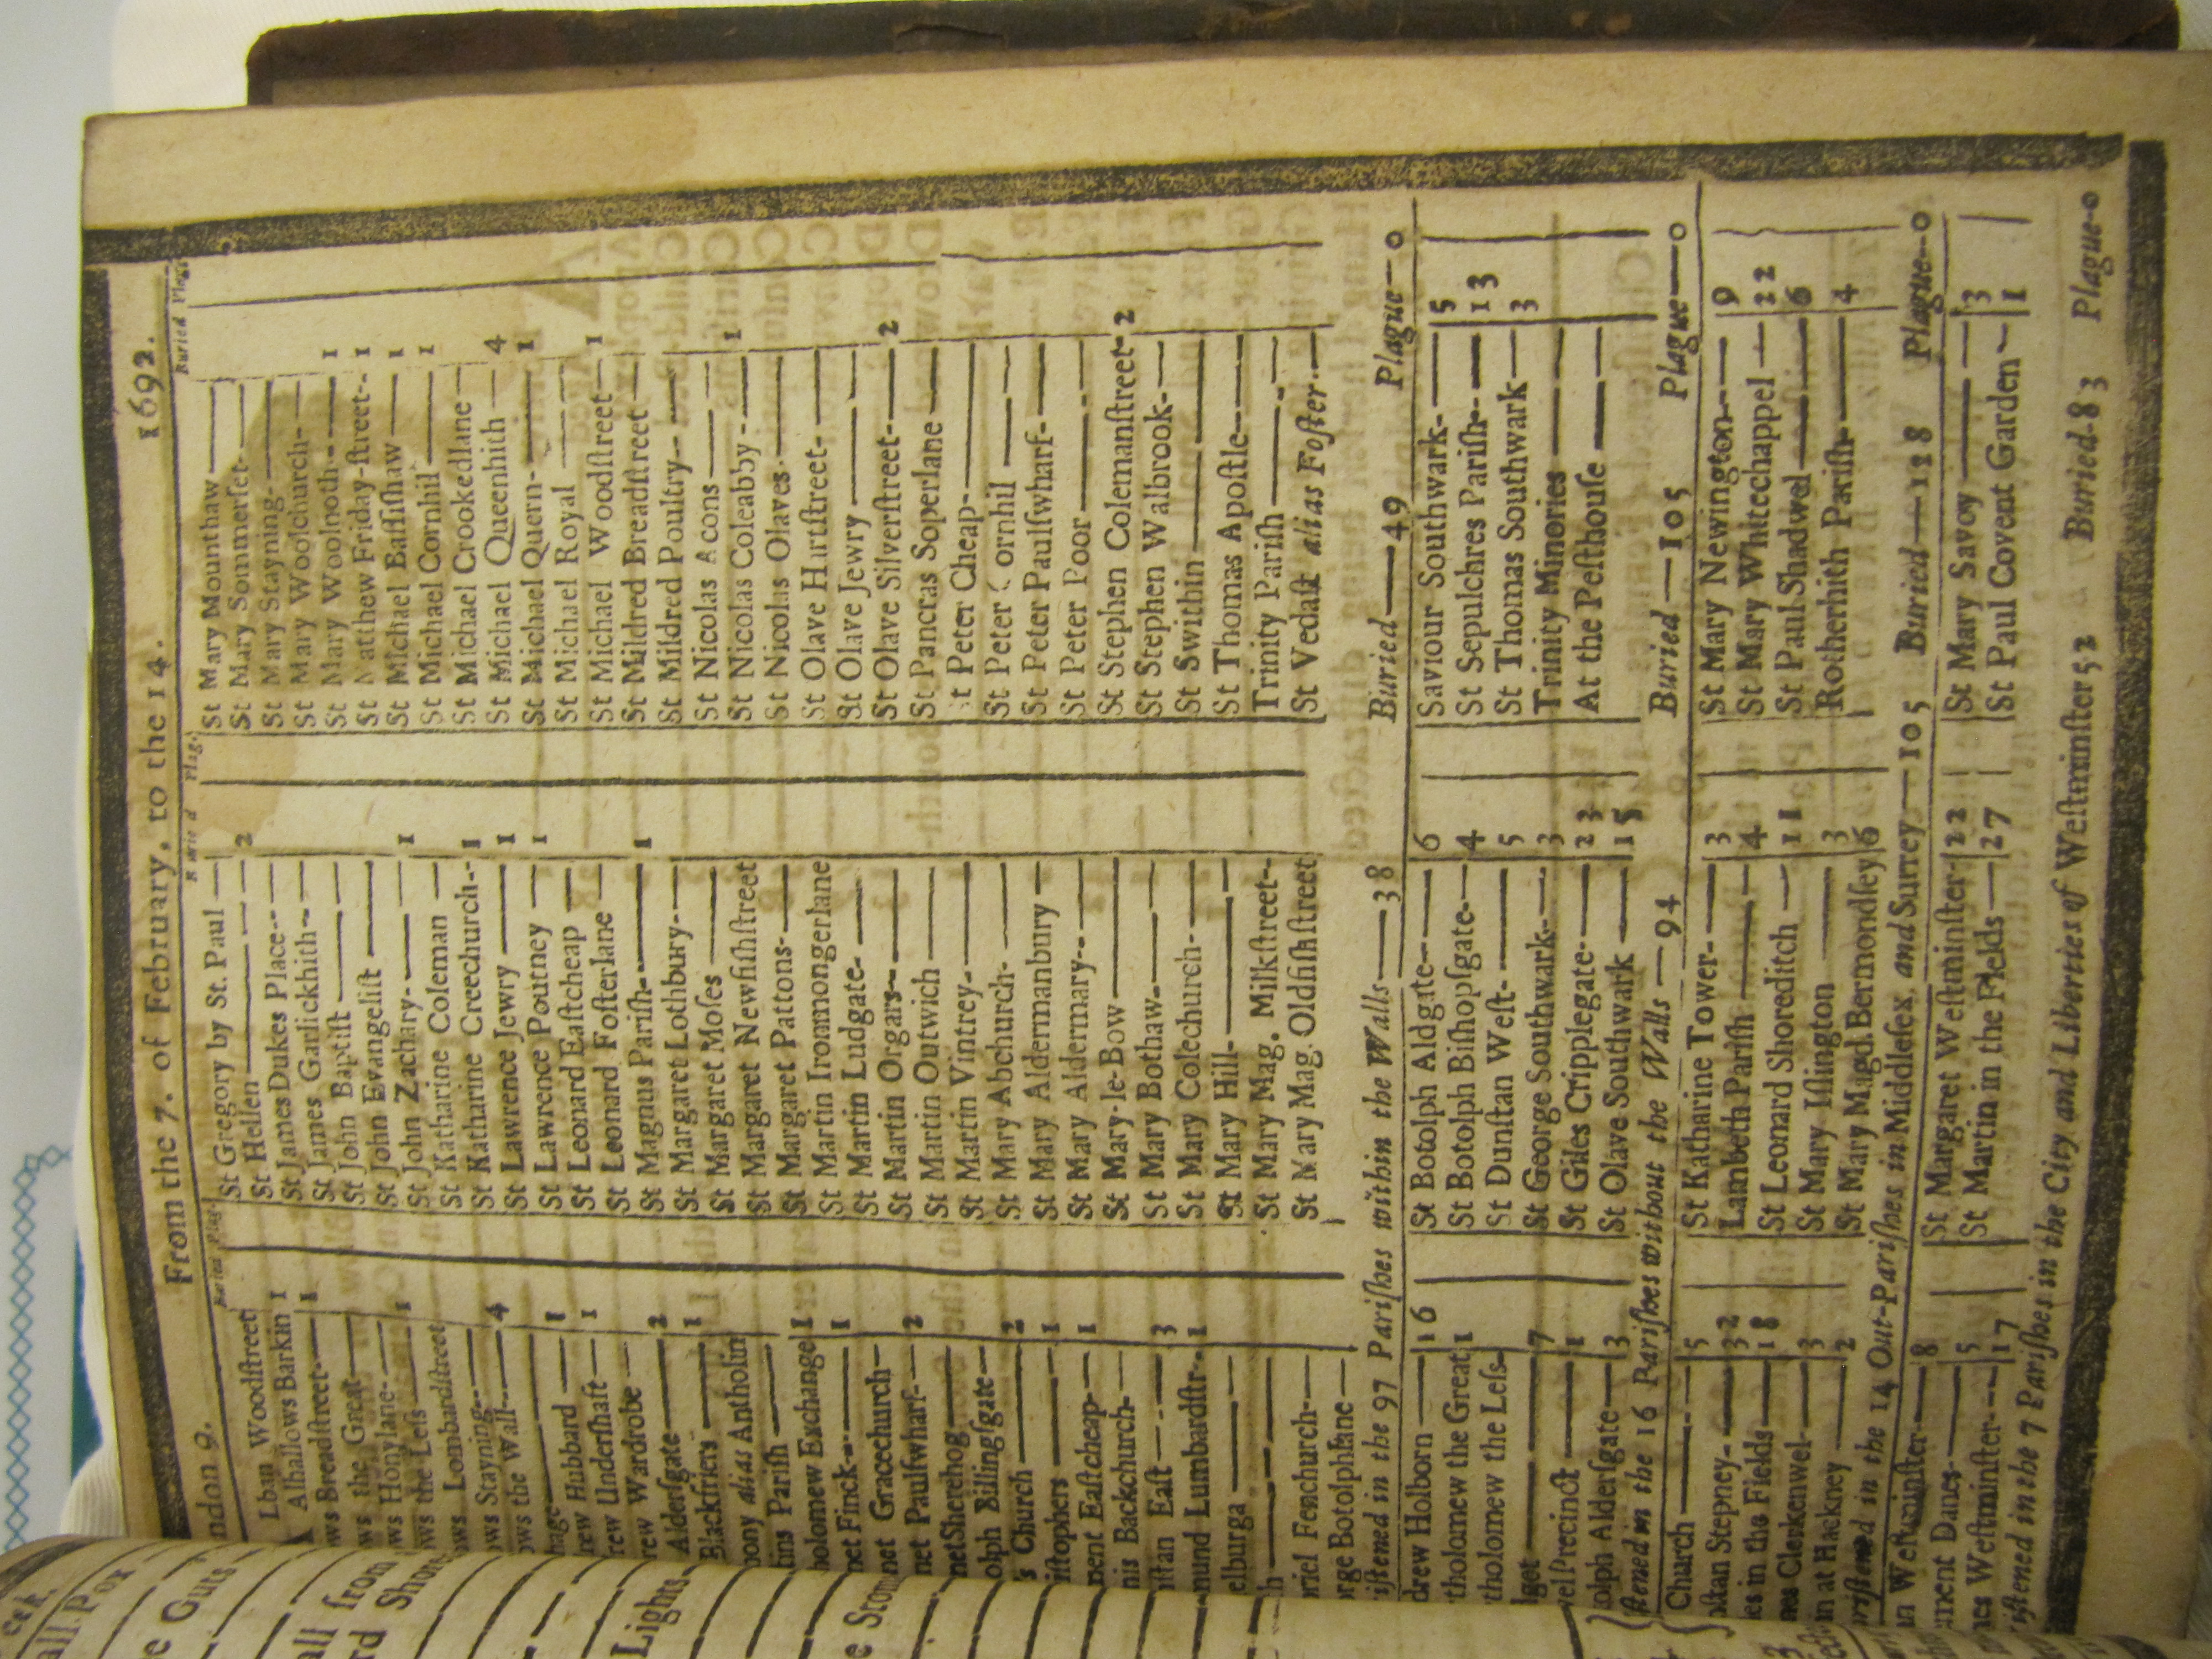 ndon 9. From the 7. of February, to the 14. 1692.
Buried Plag.
Lban Woodſtreet
Alhallows Barkin 1
ows Breadſtreet- 1
ows the Great
ows Honylane- 1
ows the Leſs
ows Lombardſtreet
ows Stayning
ows the Wall 4
hange
rew Hubbard 1
rew Underſhaft 1
rew Wardrobe
Alderſgate 2
Blackfriers 1
alias Antholin
tins Pariſh
holomew Exchange 1
net Finck 1
net Gracechurch
net Paulſwharf 2
netSherehog
olph Billingſgate
s Church 2
iſtophers 1
nent Eaſtcheap 1
nis Backchurch
nſtan Eaſt 3
nund Lumbardſtr. 1
elburga
h
riel Fenchurch
orge Botolphlane
Buried Plag.
St Gregory by St. Paul
St Hellen 2
St James Dukes Place
St James Garlickhith
St John Baptiſt
St John Evangeliſt
St John Zachary 1
St Katharine Coleman
St Katharine Creechurch 1
St Lawrence Jewry 1
St Lawrence Poutney 1
St Leonard Eaſtcheap
St Leonard Foſterlane
St Magnus Pariſh 1
St Margaret Lothbury
St Margaret Moſes
St Margaret Newfiſhſtreet
St Margaret Pattons
St Martin Ironmongerlane
St Martin Ludgate
St Martin Orgars
St Martin Outwich
St Martin Vintrey
St Mary Abchurch
St Mary Aldermanbury
St Mary Aldermary
St Mary-le-Bow
St Mary Bothaw
St Mary Colechurch
St Mary Hill
St Mary Mag. Milkſtreet
St Mary Mag. Oldfiſhſtreet
Buried Plag.
St Mary Mounthaw
St Mary Sommerſet
St Mary Stayning
St Mary Woolchurch
St Mary Woolnoth 1
St Matthew Friday-ſtreet 1
St Michael Baſſiſhaw 1
St Michael Cornhil 1
St Michael Crookedlane
St Michael Queenhith 4
St Michael Quern 1
St Michael Royal
St Michael Woodſtreet 1
St Mildred Breadſtreet
St Mildred Poultry
St Nicolas Acons
St Nicolas Coleabby 1
St Nicolas Olaves
St Olave Hartſtreet
St Olave Jewry
St Olave Silverſtreet 2
St Pancras Soperlane
St Peter Cheap
St Peter Cornhil
St Peter Paulſwharf
St Peter Poor
St Stephen Colemanſtreet 2
St Stephen Walbrook
St Swithin
St Thomas Apoſtle
Trinity Pariſh
St Vedaſt alias Foſter
iſtened in the 97 Pariſhes within the Walls 38 Buried 49 Plague 0
drew Holborn 16
tholomew the Great 1
tholomew the Leſs
get 7
well Precinct 1
olph Alderſgate 3
St Botolph Aldgate 6
St Botolph Biſhopſgate 4
St Dunſtan Weſt 5
St George Southwark 3
St Giles Cripplegate 23
St Olave Southwark 15
Saviour Southwark 5
St Sepulchres Pariſh 13
St Thomas Southwark 3
Trinity Minories
At the Peſthouſe
ſtened in the 16 Pariſhes without the Walls 94 Buried 105 Plague 0
Church 5
nſtan Stepney 32
es in the Fields 18
nes Clerkenwel 3
n at Hackney 2
St Katharine Tower 3
Lambeth Pariſh 4
St Leonard Shoreditch 11
St Mary Iſlington 3
St Mary Magd. Bermondſey 6
St Mary Newington 9
St Mary Whitechappel 22
St Paul Shadwel 6
Rotherhith Pariſh 4
riſtened in the 14 Out-Pariſhes in Middleſex, and Surrey 105 Buried 128 Plague 0
n Weſtminſter 8
ement Danes 5
nes Weſtminſter 17
St Margaret Weſtminſter 22
St Martin in the Fields 27
St Mary Savoy 3
St Paul Covent Garden 1
iſtened in the 7 Pariſhes in the City and Liberties of Weſtminſter 52 Buried 83 Plague 0
all Pox
e Guts
all from
rd Shore
Lights
e Stom